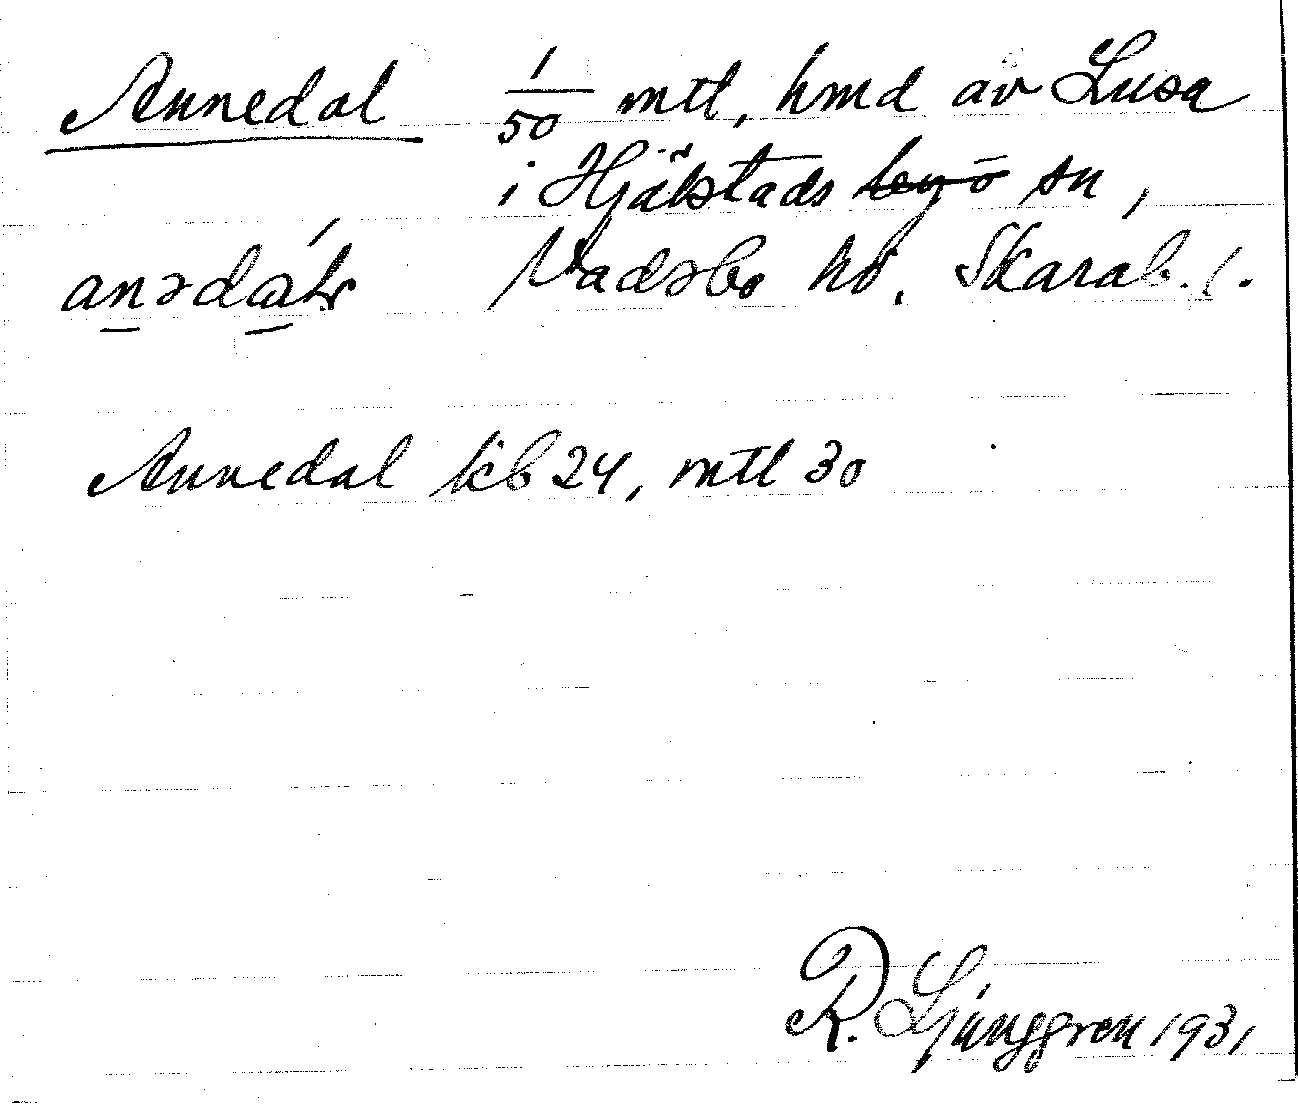 Annedal 1/50 mtl, hmd av Lusa
i Hjälstads by ō sn,
anədáƚr Vadsbo hd, Skarab. l.
Annedal kb 24, mtl 30
R. Ljunggren 1931